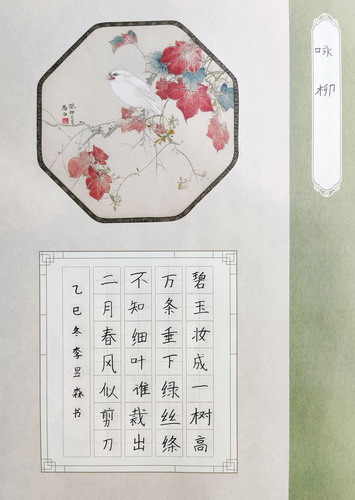 咏柳
碧玉妆成一树高
万条垂下绿丝绦
不知细叶谁裁出
二月春风似剪刀
乙巳冬李昱森书